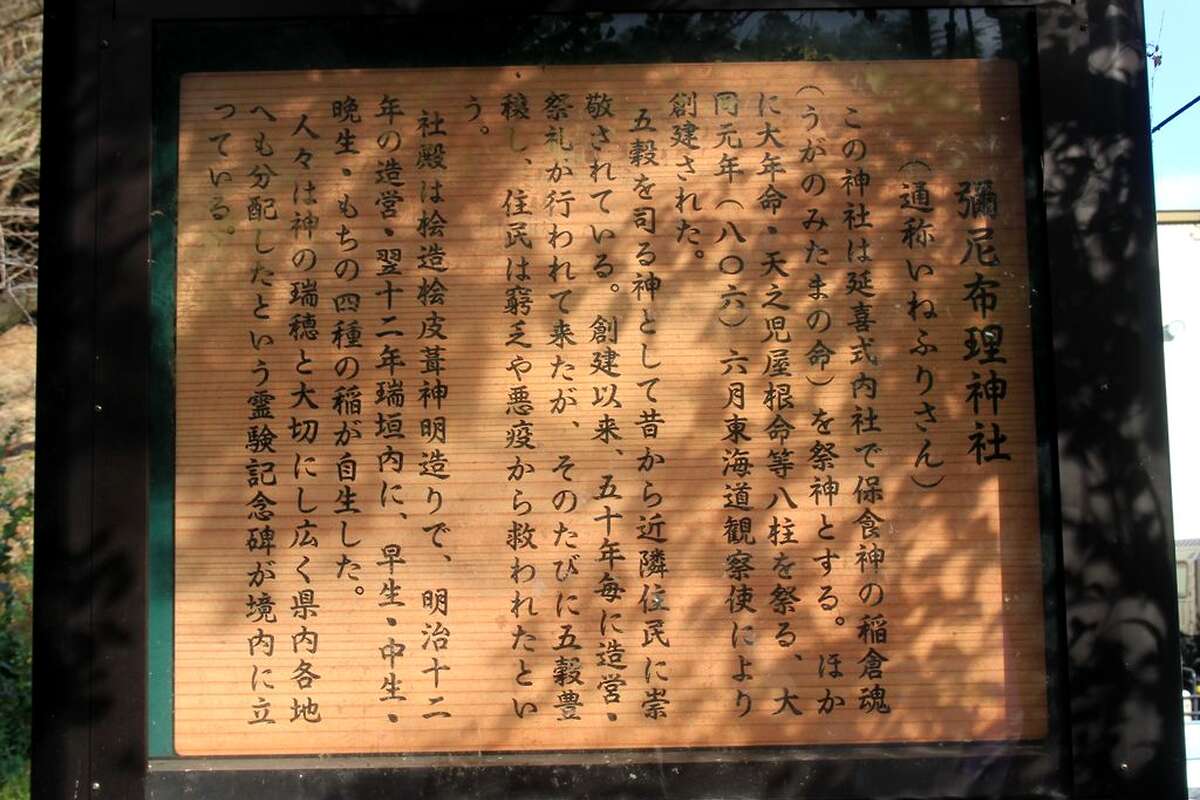 彌尼布理神社
（通称いねふりさん）
この神社は延喜式内社で保食神の稲倉魂
（うがのみたまの命）を祭神とする。ほか
に大年命・天之児屋根命等八柱を祭る、大
同元年（八〇六）六月東海道観察使により
創建された。
五穀を司る神として昔から近隣住民に崇
敬されている。創建以来、五十年毎に造営・
祭礼が行われて来たが、そのたびに五穀豊
穣し、住民は窮乏や悪疫から救われたとい
う。
社殿は桧造桧皮葺神明造りで、明治十二
年の造営・翌十二年瑞垣内に、早生・中生・
晩生・もちの四種の稲が自生した。
人々は神の瑞穂と大切にし広く県内各地
へも分配したという霊験記念碑が境内に立
っている。